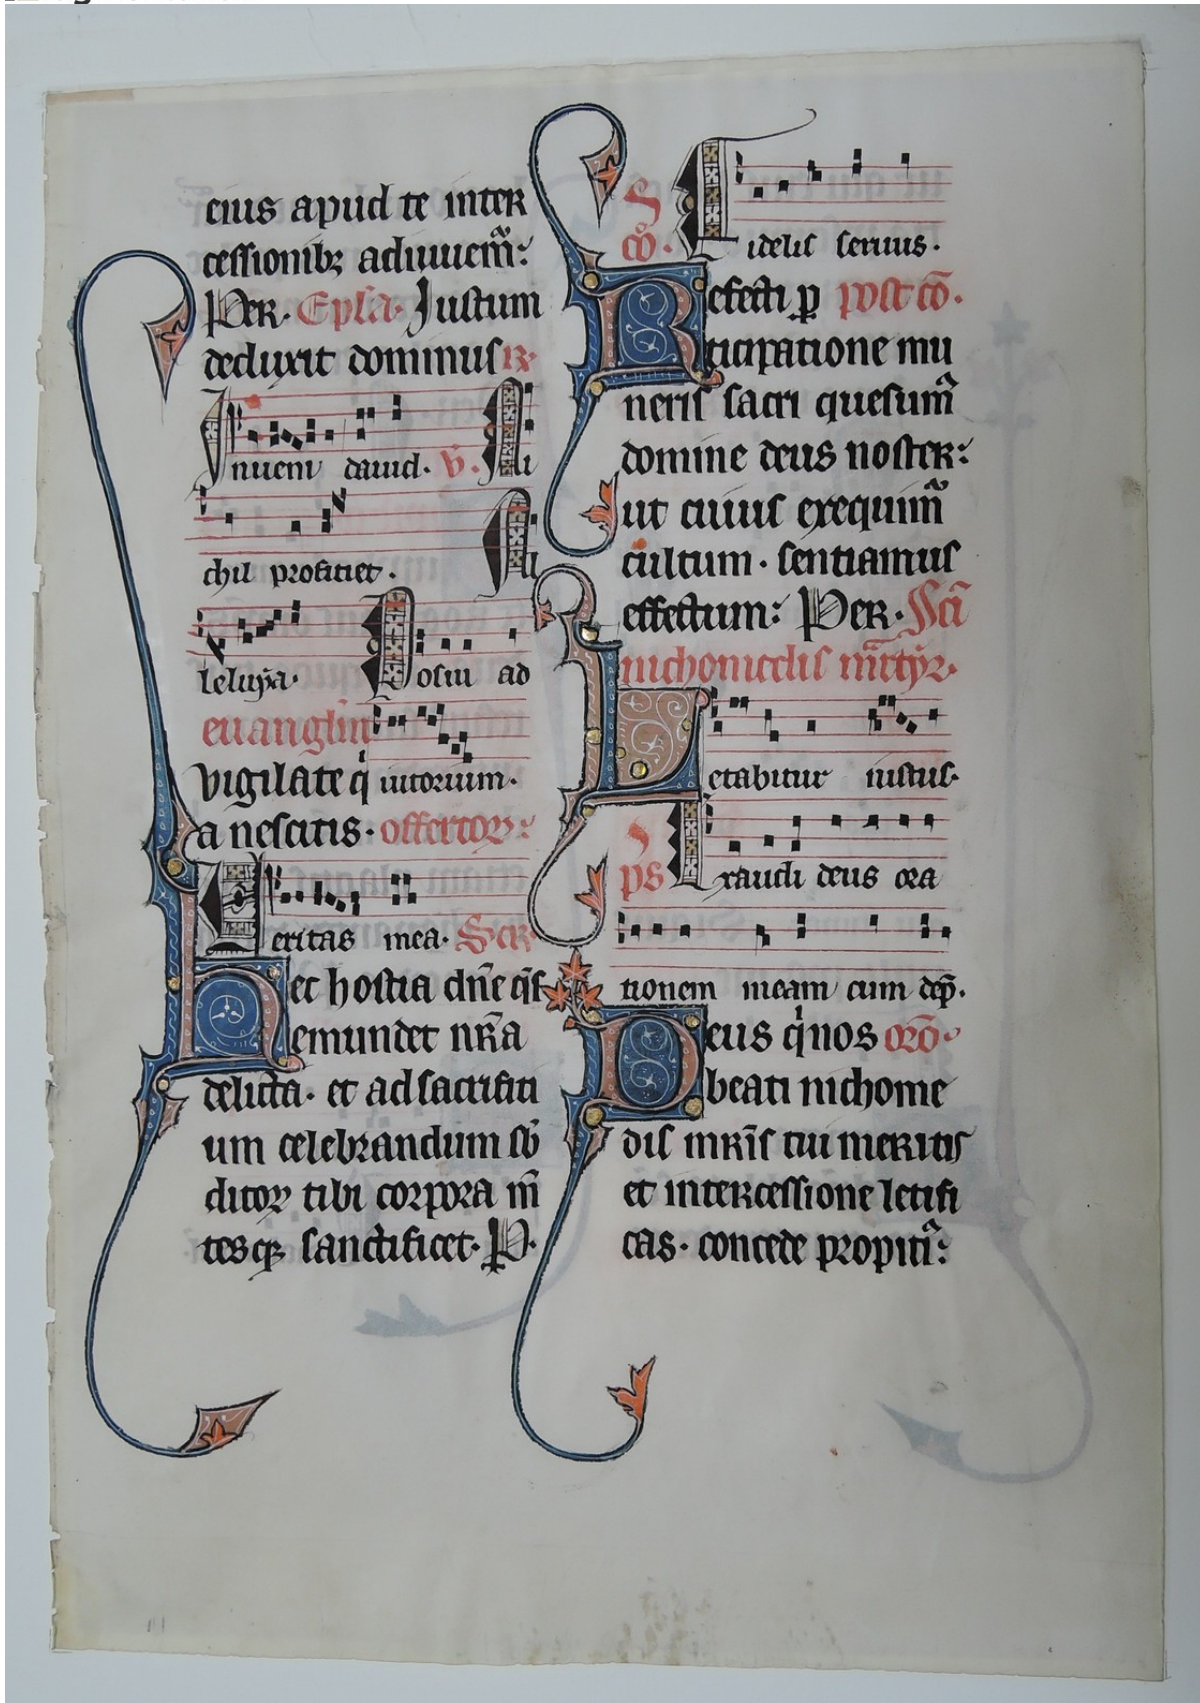 eius apud te inter
cessionibꝫ adiuuem᷑:
Per. Ep̄la. Justum
deduxit dominus ꝶ.
Jnueni dauid. v̄. Ni
chil proficiet. All
leluya. Posui ad
euangliū iutorium.
vigilate q̇
a nescitis. offertoꝝ:
Ueritas mea. Secr̄
Hec hostia dn̄e q̄s
emundet nr̄a
delicta. et ad sacrifici
um celebrandum sb̄
ditoꝝ tibi corpora m̄
tesqꝫ sanctificet. P.
Fidelis seruus. cō.
Refecti ꝑ post cō.
ticipatione mu
neris sacri quesum᷑
domine deus noster:
ut cuius exequim᷑
cultum. sentiamus
effectum: Per. Sc̄i
nichomedis m̄rtyr̄.
Letabitur iustus.
ps Exaudi deus ora
tionem meam cum dep̄.
Deus q̇ nos orō.
beati nichome
dis mr̄is tui meritis
et intercessione letifi
cas. concede propiti᷑: